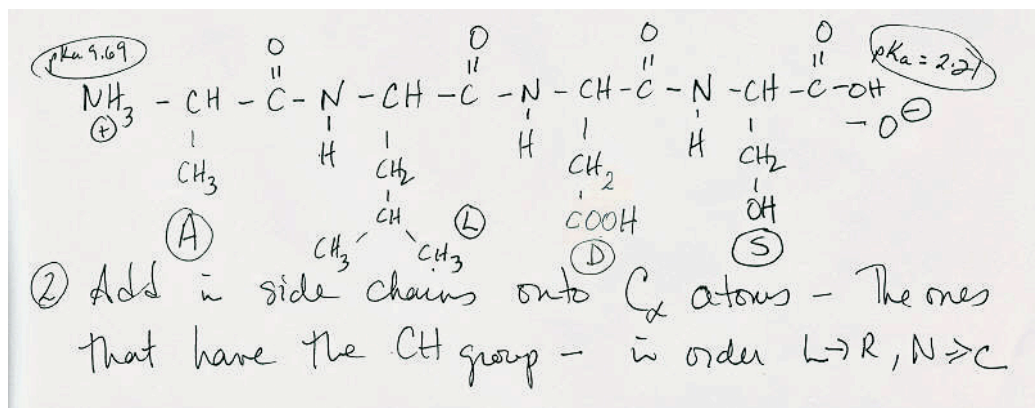 pKa 9.69
pKa = 2.21
O O O O
NH3 - CH - C - N - CH - C - N - CH - C - N - CH - C - OH
⊕ H H H - O ⊖
CH3 CH2 CH2 CH2
CH COOH OH
CH3 CH3
A L D S
② Add in side chains onto Cα atoms - The ones
that have the CH group - in order L→R, N→C